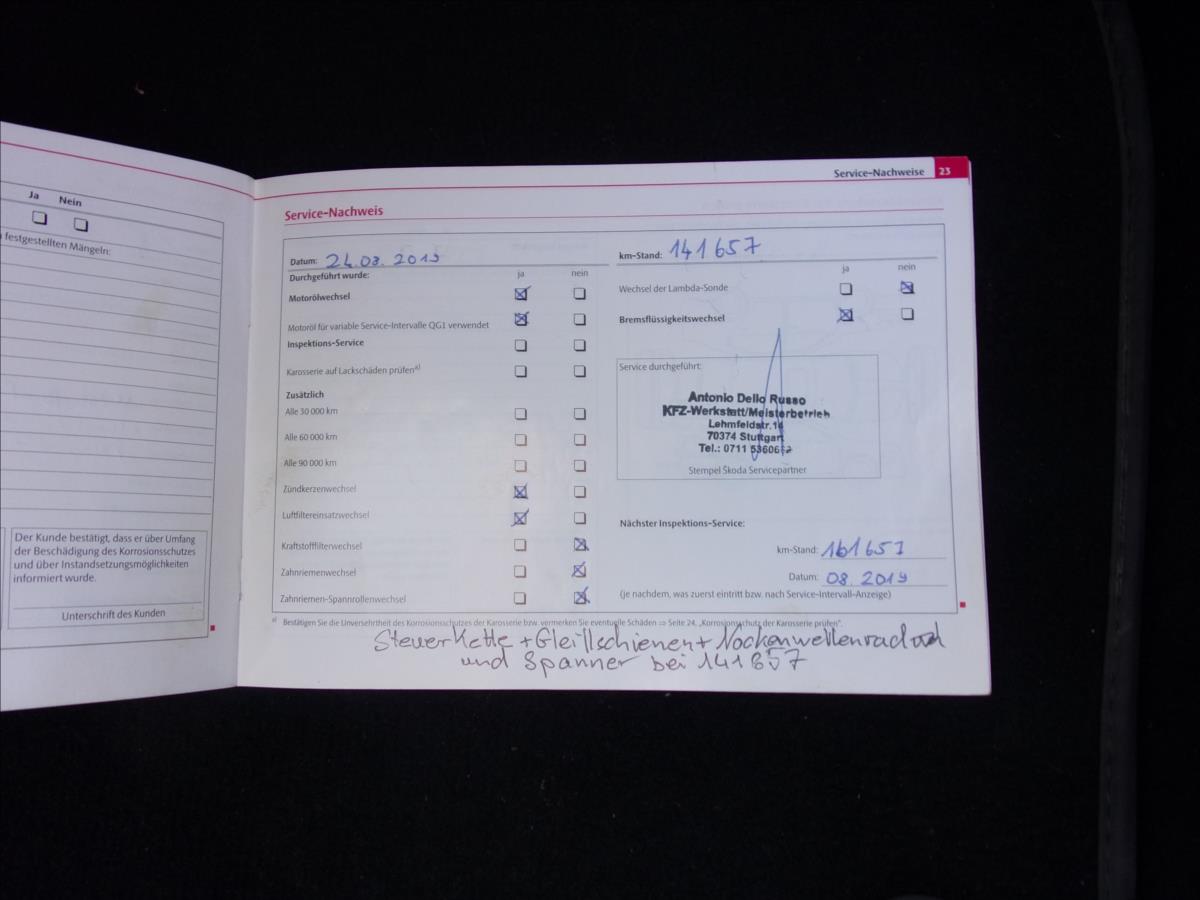 Ja Nein
festgestellten Mängeln:
Der Kunde bestätigt, dass er über Umfang
der Beschädigung des Korrosionsschutzes
und über Instandsetzungsmöglichkeiten
informiert wurde.
Unterschrift des Kunden
Service-Nachweise 23
Service-Nachweis
Datum:
Durchgeführt wurde:
ja nein
Motorölwechsel
Motoröl für variable Service-Intervalle QG1 verwendet
Inspektions-Service
Karosserie auf Lackschäden prüfen a)
Zusätzlich
Alle 30 000 km
Alle 60 000 km
Alle 90 000 km
Zündkerzenwechsel
Luftfiltereinsatzwechsel
Kraftstofffilterwechsel
Zahnriemenwechsel
Zahnriemen-Spannrollenwechsel
km-Stand: 141657
ja nein
Wechsel der Lambda-Sonde
Bremsflüssigkeitswechsel
Service durchgeführt:
Antonio Dello Russo
KFZ-Werkstatt/Meisterbetrieb
Lehmfeldstr.
70374 Stuttgart
Tel.: 0711
Stempel Škoda Servicepartner
Nächster Inspektions-Service:
km-Stand: 161657
Datum: 08. 2019
(je nachdem, was zuerst eintritt bzw. nach Service-Intervall-Anzeige)
a) Bestätigen Sie die Unversehrtheit des Korrosionsschutzes der Karosserie bzw. vermerken Sie eventuelle Schäden ⇒ Seite 24, „Korrosionsschutz der Karosserie prüfen".
Steuerkette + + Nockenwellenrad
und Spanner bei 141657